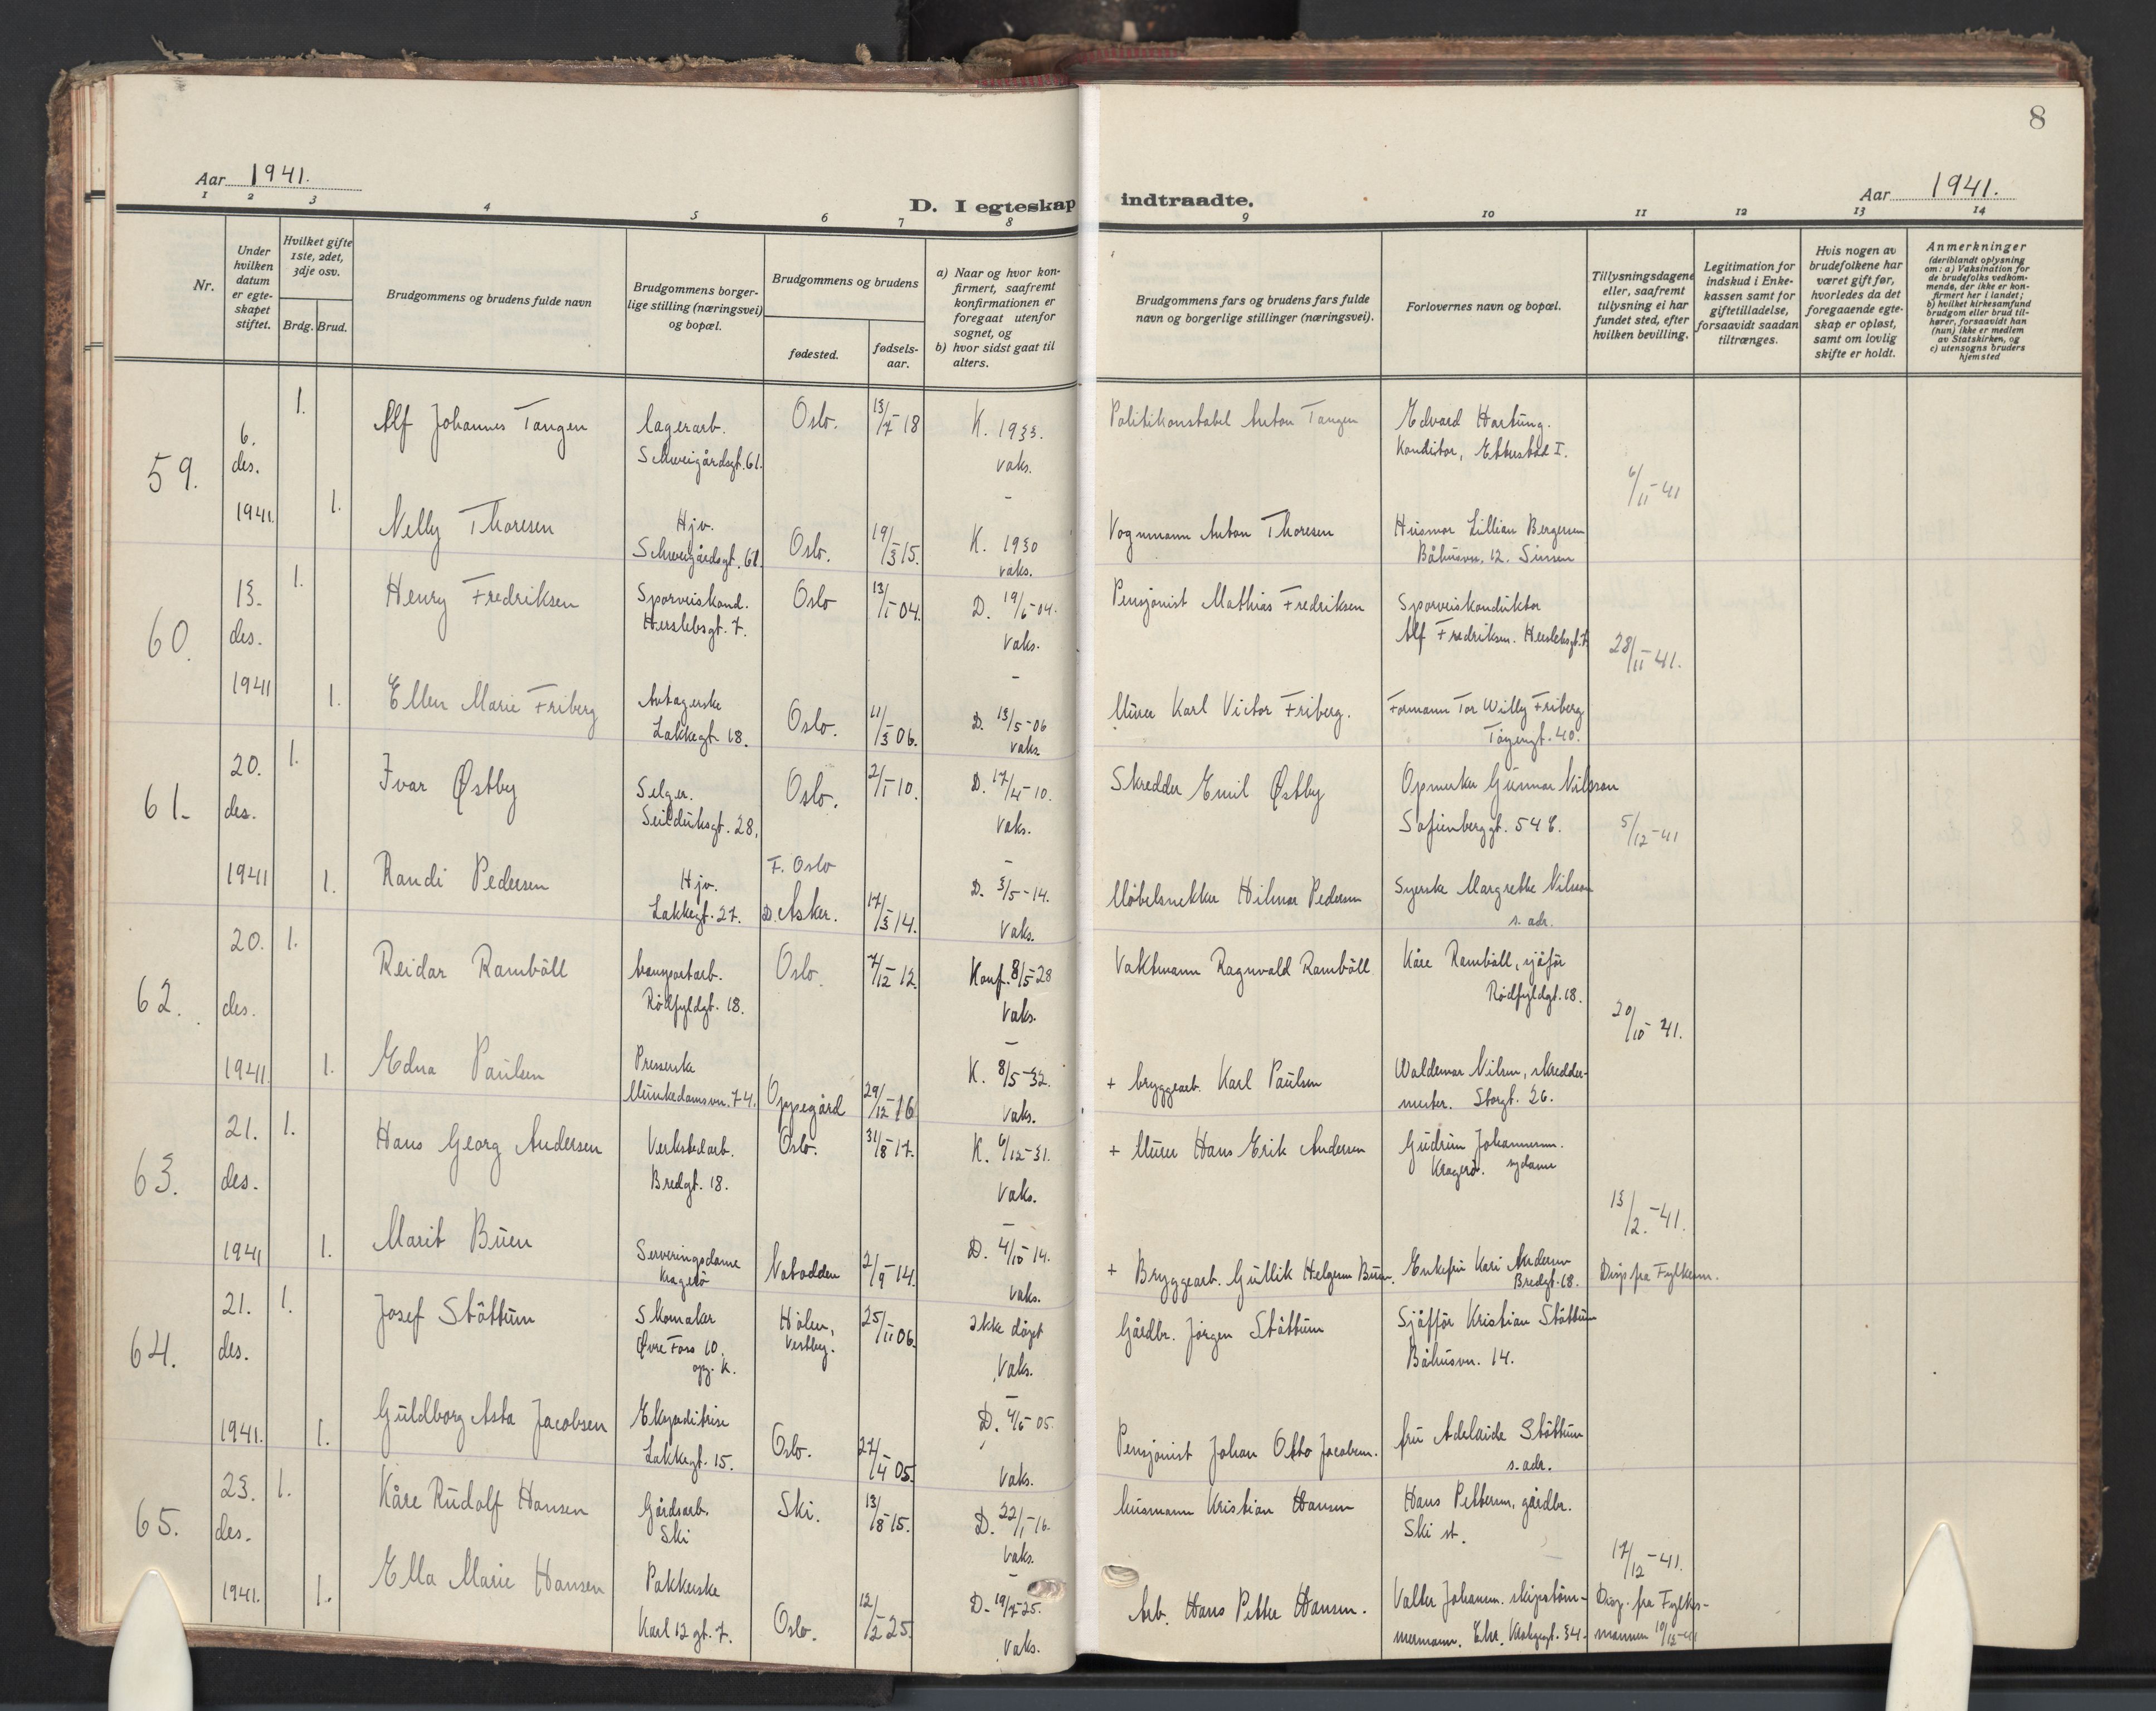 8
Aar 1941.
Aar 1941.
D. I egteskap indtraadte.
1 2 3 4 5 6 7 8 9 10 11 12 13 14
Nr.
Under hvilken datum er egte-skapet stiftet.
Hvilket gifte 1ste, 2det, 3dje osv.
Brdg. Brud.
Brudgommens og brudens fulde navn
Brudgommens borger-lige stilling (næringsvei) og bopæl.
Brudgommens og brudens
fødested.
fødsels-aar.
a) Naar og hvor kon-firmert, saafremt konfirmationen er foregaat utenfor sognet, og
b) hvor sidst gaat til alters.
Brudgommens fars og brudens fars fulde navn og borgerlige stillinger (næringsvei).
Forlovernes navn og bopæl.
Tillysningsdagene eller, saafremt tullysning ei har fundet sted, efter hvilken bevilling.
Legitimation for indskud i Enke-kassen samt for giftetilladelse, forsaavidt saadan tiltrænges.
Hvis nogen av brudefolkene har været gift før, hvorledes da det foregaaende egte-skap er opløst, samt om lovlig skifte er holdt.
Anmerkninger (deriblandt oplysning om: a) Vaksination for de brudefolks vedkom-mende, der ikke er kon-firmert her i landet; b) hvilket kirkesamfund brudgom eller brud til-hører, forsaavidt han (hun) ikke er medlem av Statskirken, og c) utensogns bruders hjemsted
59. 6. des. 1941.
1. Alf Johannes Tangen lagerarb. Schweigårdsgt. 61. Oslo. 13/7-18 K. 1933. vaks. Politikonstabel Anton Tangen Edvard Hartung. Konditor, Etterstad I.
6/11-41
1. Nelly Thoresen Hjv. Schweigårdsgt. 61. Oslo. 19/3-15. K. 1930 vaks. Vognmann Anton Thoresen Husmor Lillian Bergersen Båhusvn. 12. Sinsen
60. 13. des. 1941
1. Henry Fredriksen Sporveiskond. Herslebsgt. 7. Oslo 13/1-04. D. 19/6-04. vaks. Pensjonist Mathias Fredriksen Sporveiskonduktør Alf Fredriksen. Herslebsgt. 7.
28/11-41.
1. Ellen Marie Friberg Avtagerske Lakkegt. 18. Oslo. 11/3-06. D. 13/5-06 vaks. Murer Karl Victor Friberg. Formann Tor Willy Friberg Tøyengt. 40.
61. 20. des. 1941
1. Ivar Østby Selger. Seilduksgt. 28. Oslo. 2/1-10. D. 17/4-10. vaks. Skredder Emil Østby Opmerker Gunnar Nilsson Sofienberggt. 54
5/12-41
1. Randi Pedersen Hjv. Lakkegt. 27. F. Oslo D. Asker. 17/3-14. D. 3/5-14. vaks. Møbelsnekker Hilmar Pedersen Syerske Margrethe Nilsson s. adr.
62. 20. des. 1941.
1. Reidar Ramböll transportarb. Rødfyldgt. 18. Oslo. 7/12-12. Konf. 8/5-28 vaks. Vaktmann Ragnvald Ramböll Kåre Ramböll, sjåfør Rødfyldgt. 18.
20/10-41.
1. Edna Paulsen Presserske Munkedamsvn. 74. Oppegård 29/12-16 K. 8/5-32. vaks. + bryggearb. Karl Paulsen Waldemar Nilsen, skredder-mester. Storgt. 26.
63. 21. des. 1941
1. Hans Georg Andersen Verkstedarb. Bredgt. 18. Oslo. 31/8-17. K. 6/12-31. vaks. + Murer Hans Erik Andersen Gudrun Johannessen. Kragerø. sydame
13/12-41.
1. Marit Buen Serveringsdame Kragerø Notodden 2/9-14. D. 4/10-14. vaks. + Bryggearb. Gullik Helgesen Buen. Enkefru Kari Andersen Bredgt. 18. Disp fra Fylkesm.
64. 21. des. 1941.
1. Josef Støttum Skomaker Øvre Foss 10. opg. K. Hølen, Vestby. 25/11-06. Ikke døpt vaks. Gårdbr. Jörgen Støttum Sjåffør Kristian Støttum Båhusvn. 14.
1. Guldborg Asta Jacobsen Ekspeditrise Lakkegt. 15. Oslo. 27/4-05. D. 4/6-05. vaks. Pensjonist Johan Otto Jacobsen. fru Adelaide Støttum s. adr.
65. 23. des. 1941.
1. Kåre Rudolf Hansen Gårdsarb. Ski Ski. 13/8-15. D. 22/1-16. vaks. Kristian Hansen Hans Pettersen, gårdbr. Ski st.
17/12-41.
1. Ella Marie Hansen Pakkerske Karl 12 gt. 7. Oslo. 12/2-25. D. 19/7-25. vaks. Arb. Hans Petter Hansen. Valter Johansen. skipstøm-mermann. Chr. Krohgsgt. 34. Disp. fra Fylkes-mannen 10/12-41